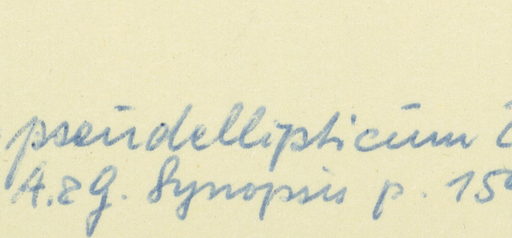 pseudellipticum
A. & G. Synopsis p. 15